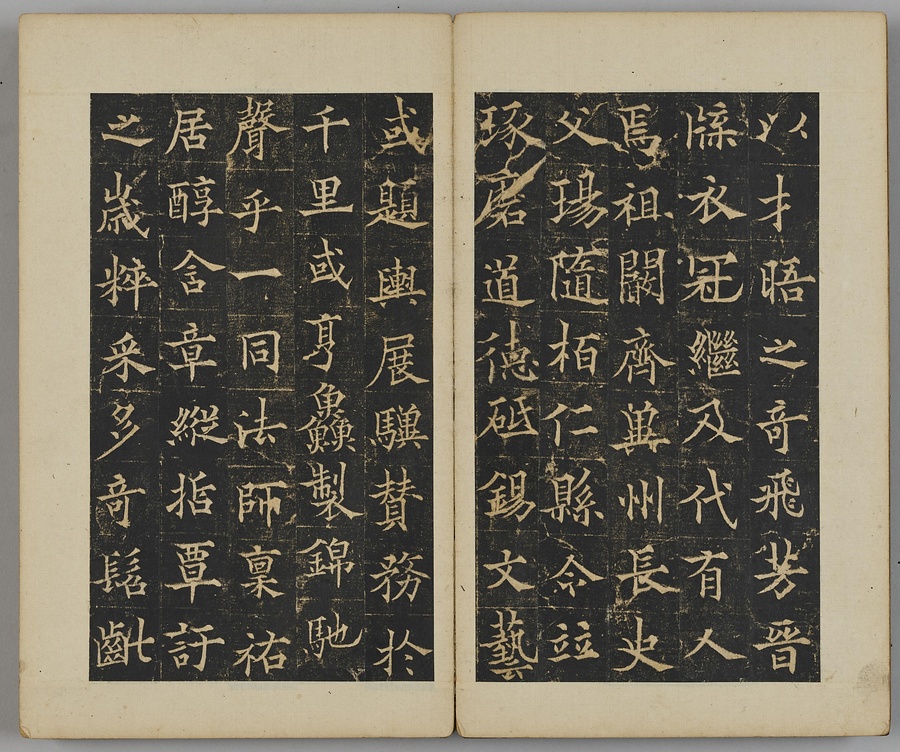 以才晤之奇飛芳晉
牒衣冠繼及代有人
焉祖闞齊兾州長史
父瑒隨栢仁縣令竝
琢磨道德砥錫文藝
或題輿展驥賛務於
千里或亨鱻製錦馳
聲乎一同法師稟祐
居醇含章縱哲覃訏
之歲粹采多奇髫齔